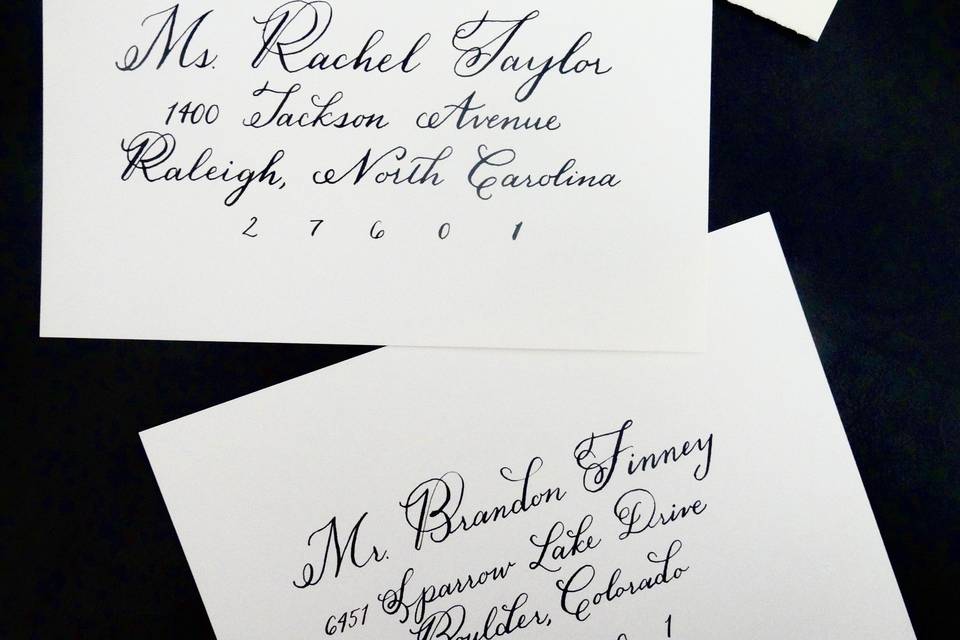 Ms. Rachel Taylor
1400 Jackson Avenue
Raleigh, North Carolina
2 7 6 0 1
Mr. Brandon Finney
6451 Sparrow Lake Drive
Boulder, Colorado